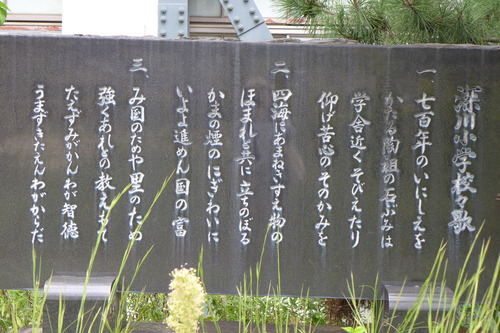 深川小学校々歌
一 七百年のいにしえを
かたる陶祖の石ぶみは
学舎近くそびえたり
仰げ苦心のそのかみを
二 四海にあまねきすえ物の
ほまれと共に立ちのぼる
かまの煙のにぎわいに
いよよ進めん国の富
三 み国のため又里のため
強くあれとの教えもて
たえずみがかんわが智徳
うまずきたえんわがからだ